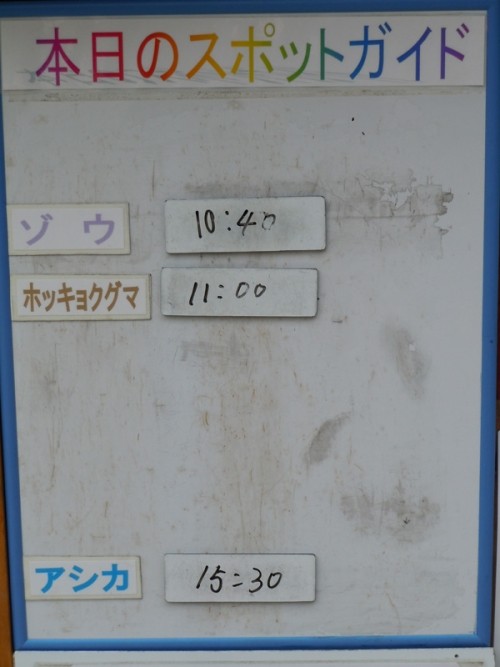 本日のスポットガイド
ゾウ 10:40
ホッキョクグマ 11:00
アシカ 15:30